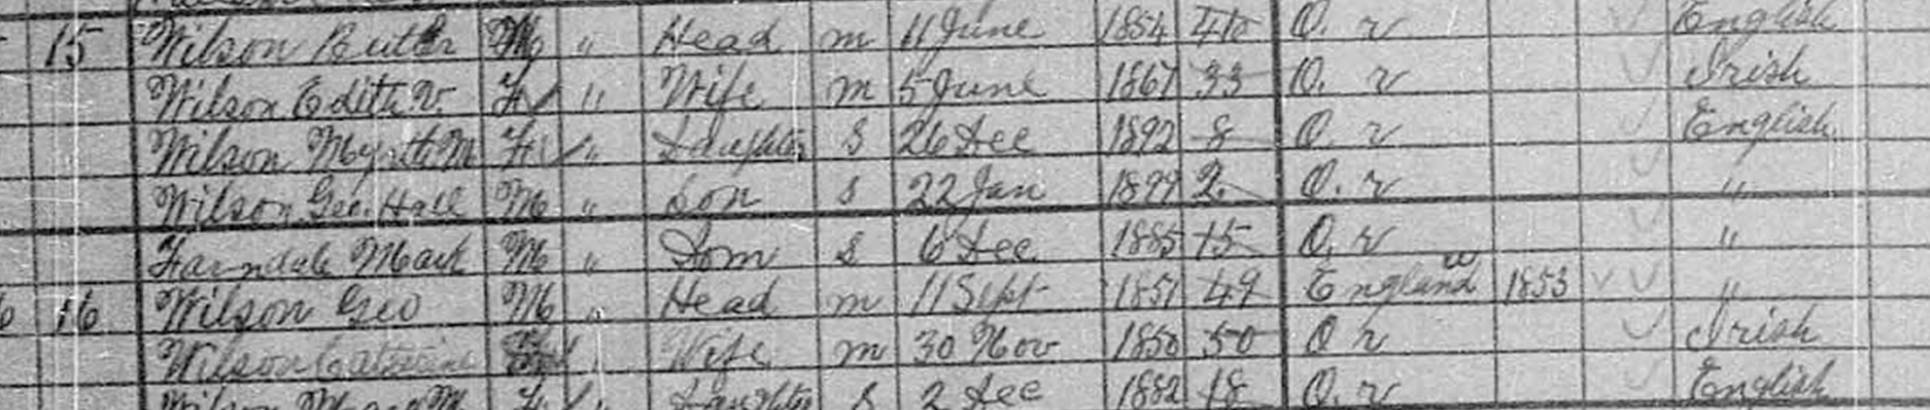 15 Wilson Butler M " Head m 11 June 1854 46 O. r English
Wilson Edith V F " Wife m 5 June 1867 33 O. r Irish
Wilson M F " Daughter S 26 Dec 1892 8 O. r English
Wilson Geo. Hall M " Son S 22 Jan 1899 2 O. r "
Farndale Mark M " Dom S 6 Dec 1885 15 O. r "
16 Wilson Geo M " Head m 11 Sept 1851 49 England 1853 "
Wilson Catherine Wife m 30 Nov 1850 50 O r Irish
Wilson M F " Daughter S 2 Dec 1882 18 O. r English